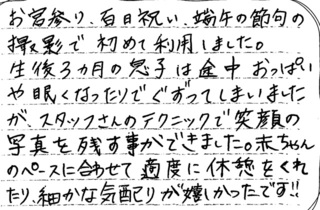 お宮祭り、百日祝い、端午の節句の
撮影で初めて利用しました。
生後3ヵ月の息子は途中おっぱい
や眠くなったりでぐずってしまいました
が、スタッフさんのテクニックで笑顔の
写真を残す事ができました。赤ちゃん
のペースに合わせて適度に休憩をくれ
たり、細かな気配りが嬉しかったです!!